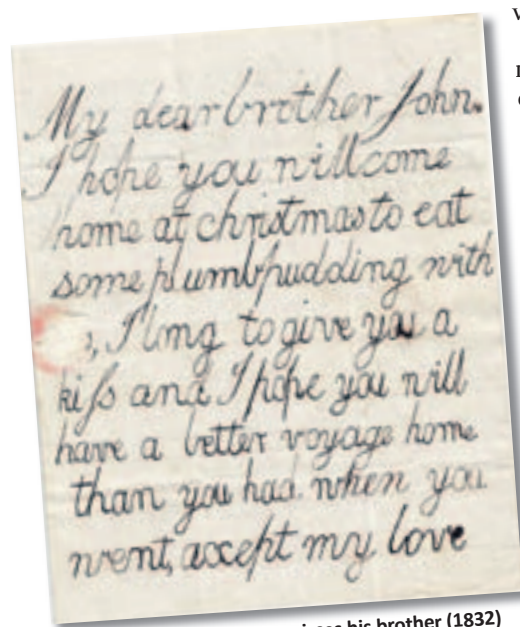 My dear brother John.
I hope you will come
home at christmas to eat
some plumb pudding with
, I long to give you a
kiss and I hope you will
have a better voyage home
than you had when you
went, accept my love
his brother (1832)